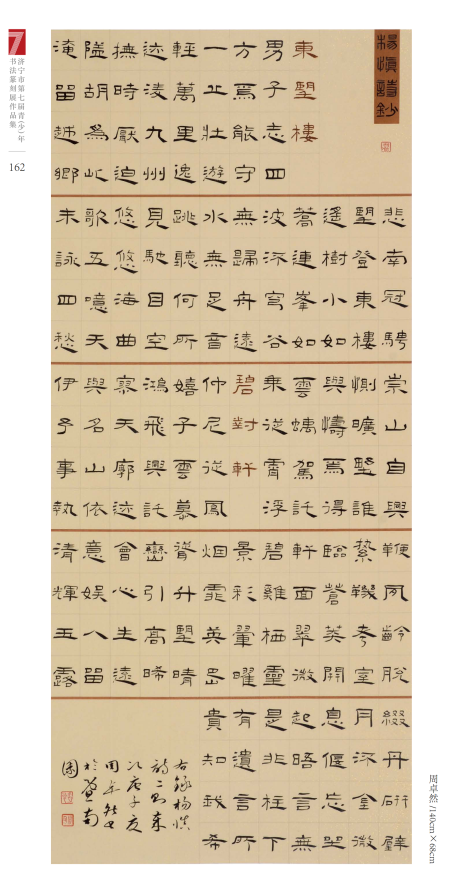 济宁市第七届青(少)年
书法篆刻展作品集
162
楊慎詩鈔
東朢樓
男子志四
方焉能守
一丘壯遊
輕萬里逸
迹凌九州
撫時厥迫
隘胡為此
淹留越鄉
悲南冠騁
朢登東樓
遥樹小如
薺連峯如
波深穹谷
無歸舟遠
水無足音
跳聽何所
見馳目空
悠悠海曲
歌五噫天
末詠四愁
崇山自興
惻曠朢誰
與儔焉得
雲螭駕託
乘從霄浮
碧對軒
仲尼從鳳
嬉子雲慕
鴻飛興託
寥天廓迹
與名山依
伊予事執
鞭夙齡脫
縶鞿考室
臨蒼英開
軒面翠微
碧雞栖靈
景彩翬曜
烟霏英嵒
脊升朢晴
巒引高晞
會心生遠
意娛人留
清輝玉露
綴丹研璧
月沐金微
息偃忘坐
起晤言無
是非柱下
有遺言所
貴知我希
右錄楊慎
詩二則
庚子夏
周卓然
於南
園
周卓然/140cm×68cm